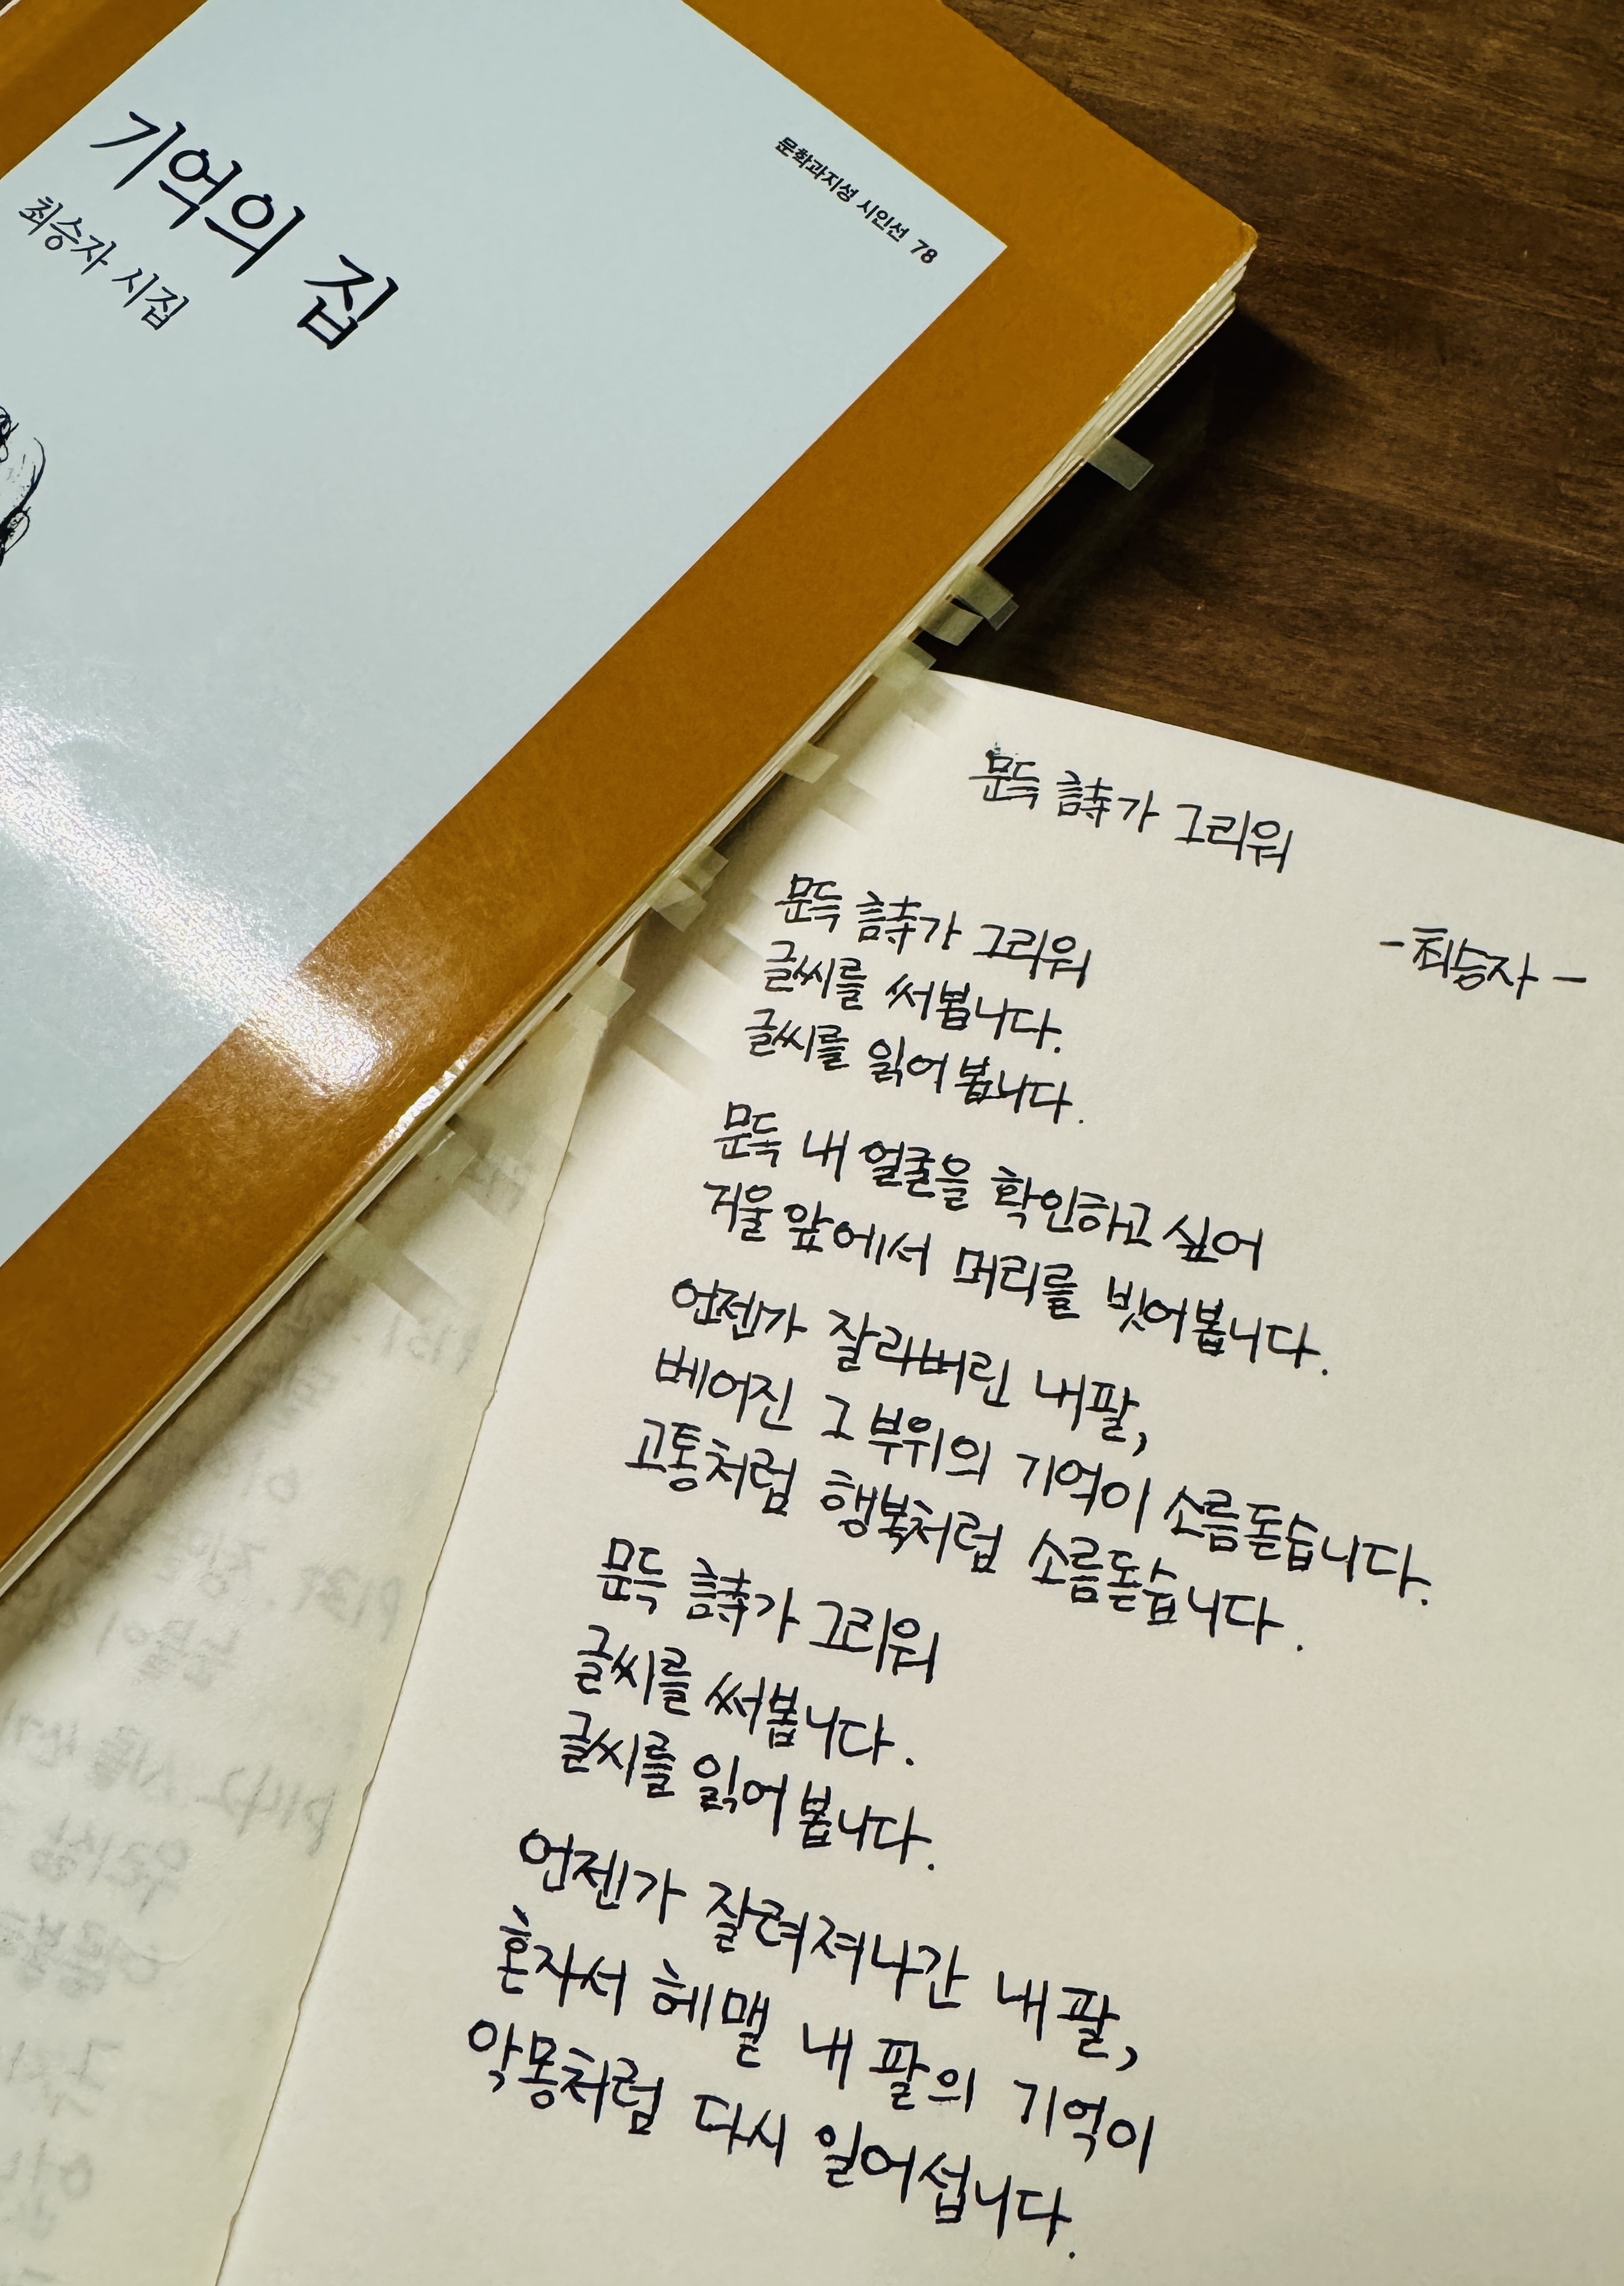 기억의 집
최승자 시집
문학과지성 시인선 78
문득 詩가 그리워
-최승자-
문득 詩가 그리워
글씨를 써봅니다.
글씨를 읽어 봅니다.
문득 내 얼굴을 확인하고 싶어
거울 앞에서 머리를 빗어봅니다.
언젠가 잘라버린 내 팔,
베어진 그 부위의 기억이 소름돋습니다.
고통처럼 행복처럼 소름돋습니다.
문득 詩가 그리워
글씨를 써봅니다.
글씨를 읽어 봅니다.
언젠가 잘려져나간 내 팔,
혼자서 헤맬 내 팔의 기억이
악몽처럼 다시 일어섭니다.